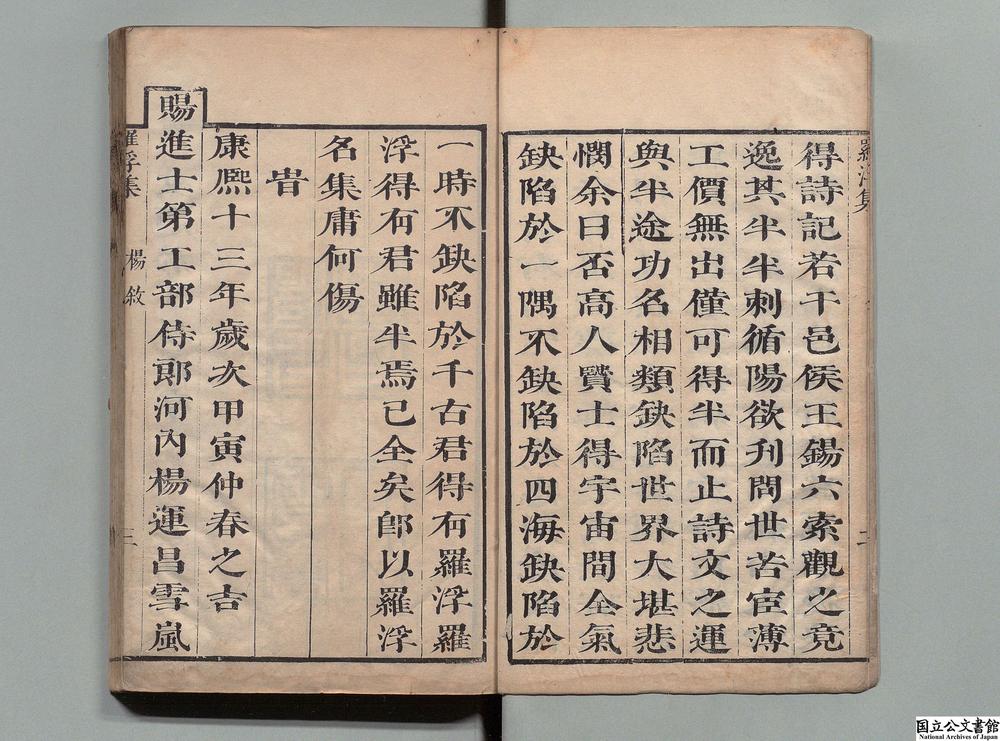 得詩記若干邑侯王錫六索觀之竟
逸其半半刺循陽欲刋問世苦宦薄
工價無出僅可得半而止詩文之運
與半途功名相類缺陷世界大堪悲
憫余曰否高人賢士得宇宙間全氣
缺陷於一隅不缺陷於四海缺陷於
二
一時不缺陷於千古君得有羅浮羅
浮得有君雖半焉已全矣卽以羅浮
名集庸何傷
旹
康熈十三年歲次甲寅仲春之吉
賜進士第工部侍郎河內楊運昌雪嵐
羅浮集
楊敘
三
国立公文書館
National Archives of Japan